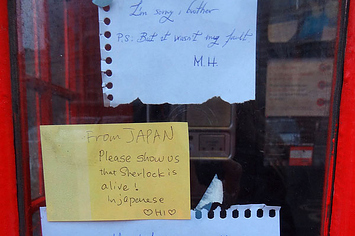 I'm sorry, brother
P.S. But it wasn't my fault
M.H.
From JAPAN
Please show us
that Sherlock is
alive!
In Japanese
♡HI♡